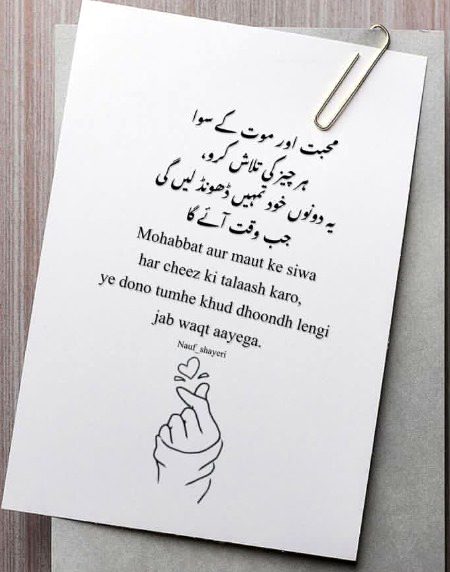 محبت اور موت کے سوا
ہر چیز کی تلاش کرو،
یہ دونوں خود تمہیں ڈھونڈ لیں گی
جب وقت آئے گا
Mohabbat aur maut ke siwa
har cheez ki talaash karo,
ye dono tumhe khud dhoondh lengi
jab waqt aayega.
Nauf_shayeri